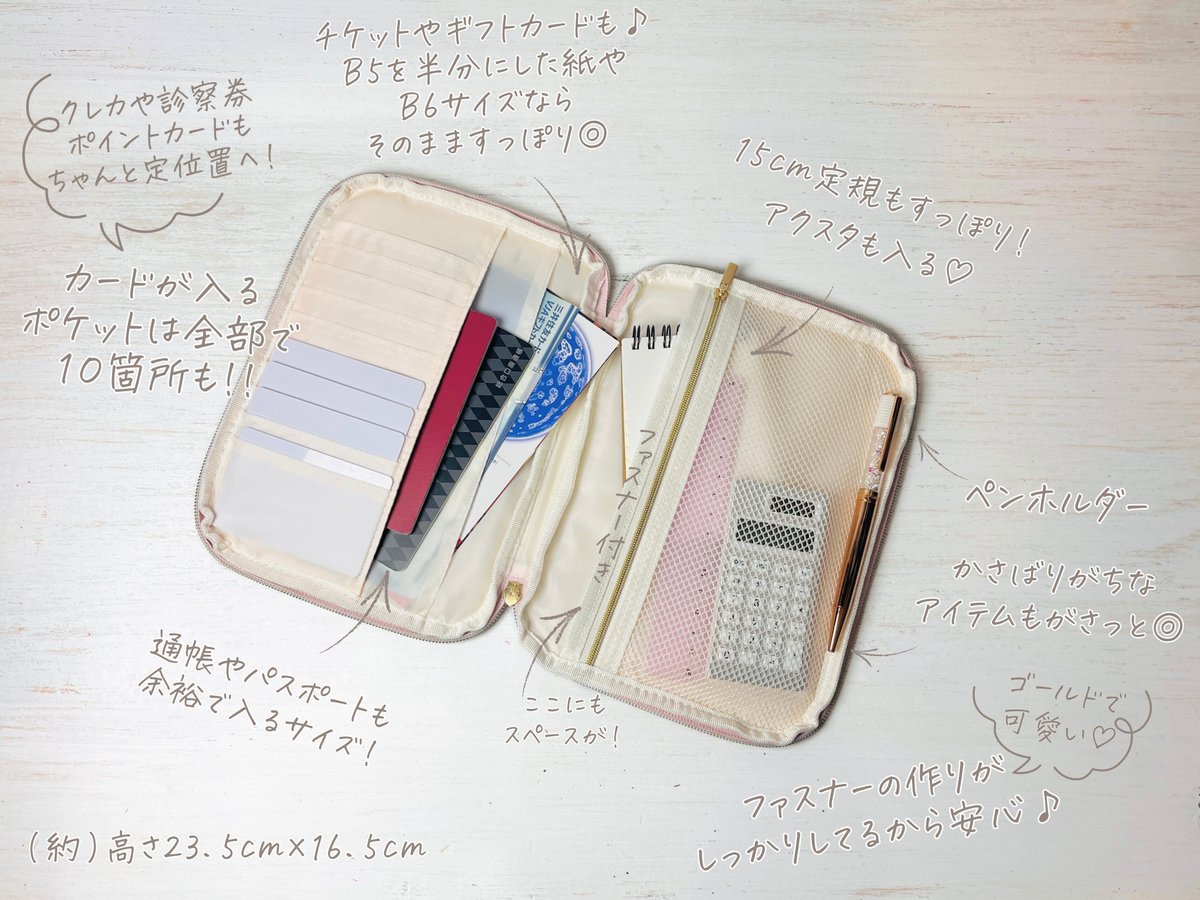 チケットやギフトカードも♪
B5を半分にした紙や
B6サイズなら
そのまますっぽり◎
クレカや診察券
ポイントカードも
ちゃんと定位置へ!
カードが入る
ポケットは全部で
10箇所も!!
15cm定規もすっぽり!
アクスタも入る♡
三井住友カード
VJAギフトカード
ファスナー付き
ペンホルダー
かさばりがちな
アイテムもがさっと◎
通帳やパスポートも
余裕で入るサイズ!
ここにも
スペースが!
ゴールドで
可愛い♡
ファスナーの作りが
しっかりしてるから安心♪
(約)高さ23.5cm×16.5cm